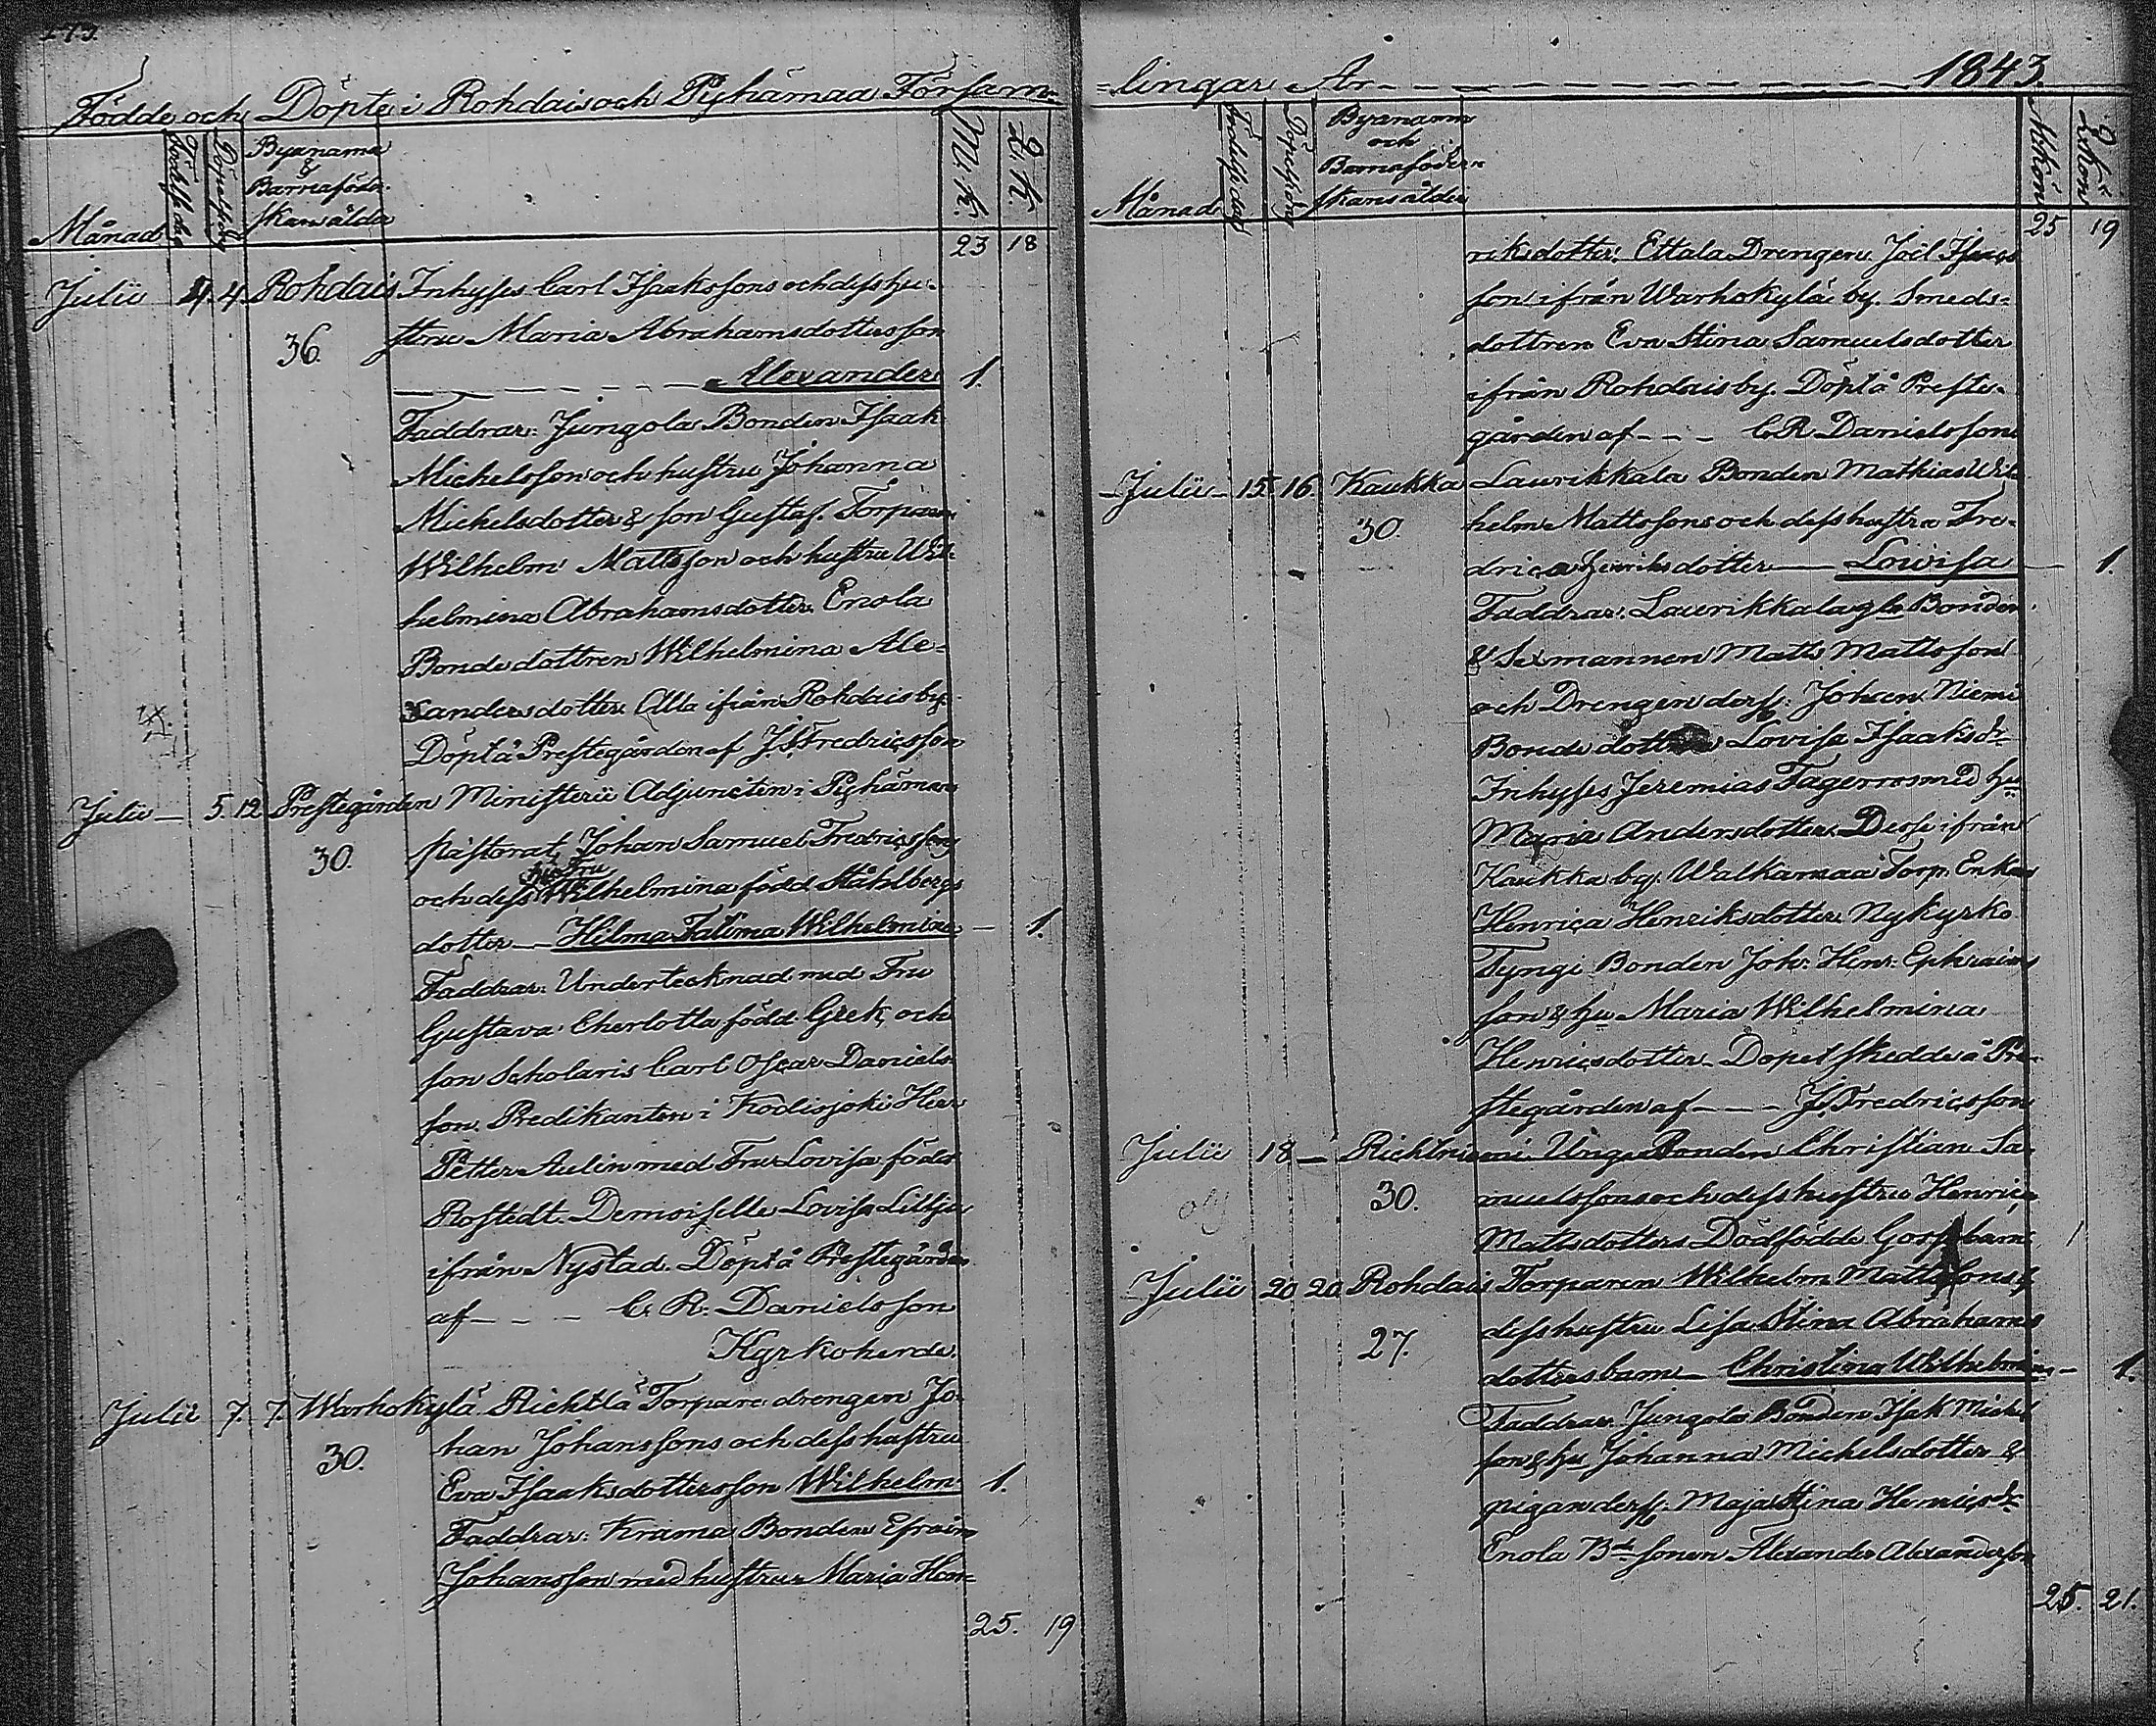 Födde och Döpte i Rohdais och Pyhämaa Församlingar År 1843
Månad
Födelsedag
Döpelsedag
Byanamn
&
Barnaföder-
skans ålder
M. K.
Q. K.
23 18
Julii 4. 4. Rohdais Inhyses Carl Isaakssons och dess hu-
36. stru Maria Abrahamsdotters son
Alexander 1.
Faddrar: Jungola Bonden Isaak
Michelsson och hustru Johanna
Michelsdotter & son Gustaf. Torparen
Wilhelm Mattsson och hustru Wil-
helmina Abrahamsdotter. Enola
Bondedottren Wilhelmina Ale-
xandersdotter. Alla ifrån Rohdais by.
Döpt å Prestegården af J. S. Fredricsson
Julii 5. 12. Prestegården Ministerii Adjuncten i Pyhämaa
30. pastorat, Johan Samuel Fredricssons
och dess Hustru Wilhelmina född Ståhlbergs
dotter Hilma Fatima Wilhelmina 1.
Faddrar: Undertecknad med Fru
Gustava Cherlotta född Grek, och
son Scholaris Carl Oscar Daniels-
son. Predikanten i Kodisjoki Herr
Petter Aulin med Fru Lovisa född
Rostedt. Demoiselle Lovisa Liltja
ifrån Nystad. Döpt å Prestegården
af C. R. Danielsson
Kyrkoherde.
Julii 7. 7. Warhokylä Richtlä Torpare drengen Jo-
30. han Johanssons och dess hustru
Eva Isaaksdotters son Wilhelm 1.
Faddrar: Krama Bonden Efraim
Johansson med hustru Maria Hen-
25. 19
Månad
Födelsedag
Döpelsedag
Byanamn
och
Barnaföder-
skans ålder
Mkön
Qkön
25 19
riksdotter. Ettala Drengen Joël Isaacs
son ifrån Warhokylä by. Smeds-
dottren Eva Stina Samuelsdotter
ifrån Rohdais by. Döpt å Preste-
gården af C R Danielsson
Julii 15 16. Kaukka Laurikkala Bonden Mathias Wil-
30. helm Mattssons och dess hustru Fre-
drica Henriksdotter Lovisa 1.
Faddrar: Laurikkala gla Bonden
& Sexmannen Matts Mattsson
och Drengen derss. Johan. Niemi
Bonde dottren Lovisa Isaaksdr
Inhyses Jeremias Fagerros med hu
Maria Andersdotter. Desse ifrån
Kaukka by. Walkamaa Torp. Enkan
Henrica Henriksdotter. Nykyrko
Tyngi Bonden Joh: Henr: Ephraims
son & hu Maria Wilhelmina
Henricsdotter. Dopet skedde å Pre-
stegården af J. S. Fredricsson
Julii 18 — Richtniemi Unge Bonden Christian Sa-
30. muelssons och dess hustru Henrica
Mattsdotters Dödfödde Gossebarn 1
Julii 20 20. Rohdais Torparen Wilhelm Mattssons &
27. dess hustru Lisa Stina Abrahams
dotters barn Christina Wilhelmina 1.
Faddrar: Jungola Bonden Isak Mickel
son & hu Johanna Michelsdotter &
pigan derss. Maja Stina Henricsdr
Enola Bde sonen Alexander Alexandersson
25. 21.